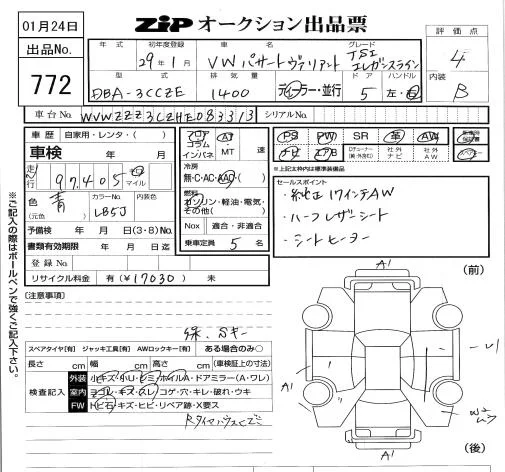 01月24日
ZiP オークション出品票
出品No.
772
年式 初年度登録 車名 グレード
29年1月 VW パサートヴァリアント TSI エレガンスライン
型式 排気量 ドア ハンドル
DBA-3CCZE 1400 ディーラー・並行 5 左・右
評価点
4
内装
B
車台No. WVWZZZ3CZHE083313 シリアルNo.
車歴 自家用・レンタ( )
車検 年 月
走行 97,405 マイル
色 青 (元色) LB5J 内装色
予備検 年 月 日(3・8)No.
書類有効期限 年 月 日迄
登録No.
リサイクル料金 有(¥17030) 未
フロア コラム インパネ AT MT 速
冷房 無・C・AC・AAC・( )
燃料 ガソリン・軽油・電気・その他( )
Nox 適合・非適合
乗車定員 5 名
PS PW SR 革 AW
ナビ TV
社外ナビ 社外AW
※上記太枠内は標準装備品
セールスポイント
・純正17インチAW
・ハーフレザーシート
・シートヒーター
【注意事項】
保、Sキー
スペアタイヤ[有] ジャッキ工具[有] AWロックキー[有] ある場合のみ○
長さ cm 幅 cm 高さ cm (車検証上の寸法)
検査記入
外装 小キズ・小U・ヒミ・ホイルA・ドアミラー(A・ワレ)
室内 ヨゴレ・キズ・スレ・コゲ・穴・キレ・破れ・ウキ
FW トビ石・キズ・ヒビ・リペア跡・X要ス
RタイヤハウスCごこ
※ご記入の際はボールペンで強くご記入下さい。
(前)
A1
A1
A1
(後)